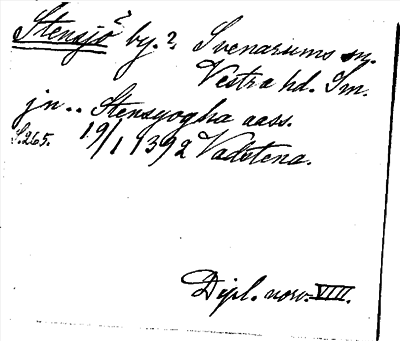 Stensjö? by.? Svenarums sn.
Vestra hd. Sm.
jn.. Stensyogha aass.
S.265. 19/1 1392 Vadstena.
Dipl. norv. VIII.